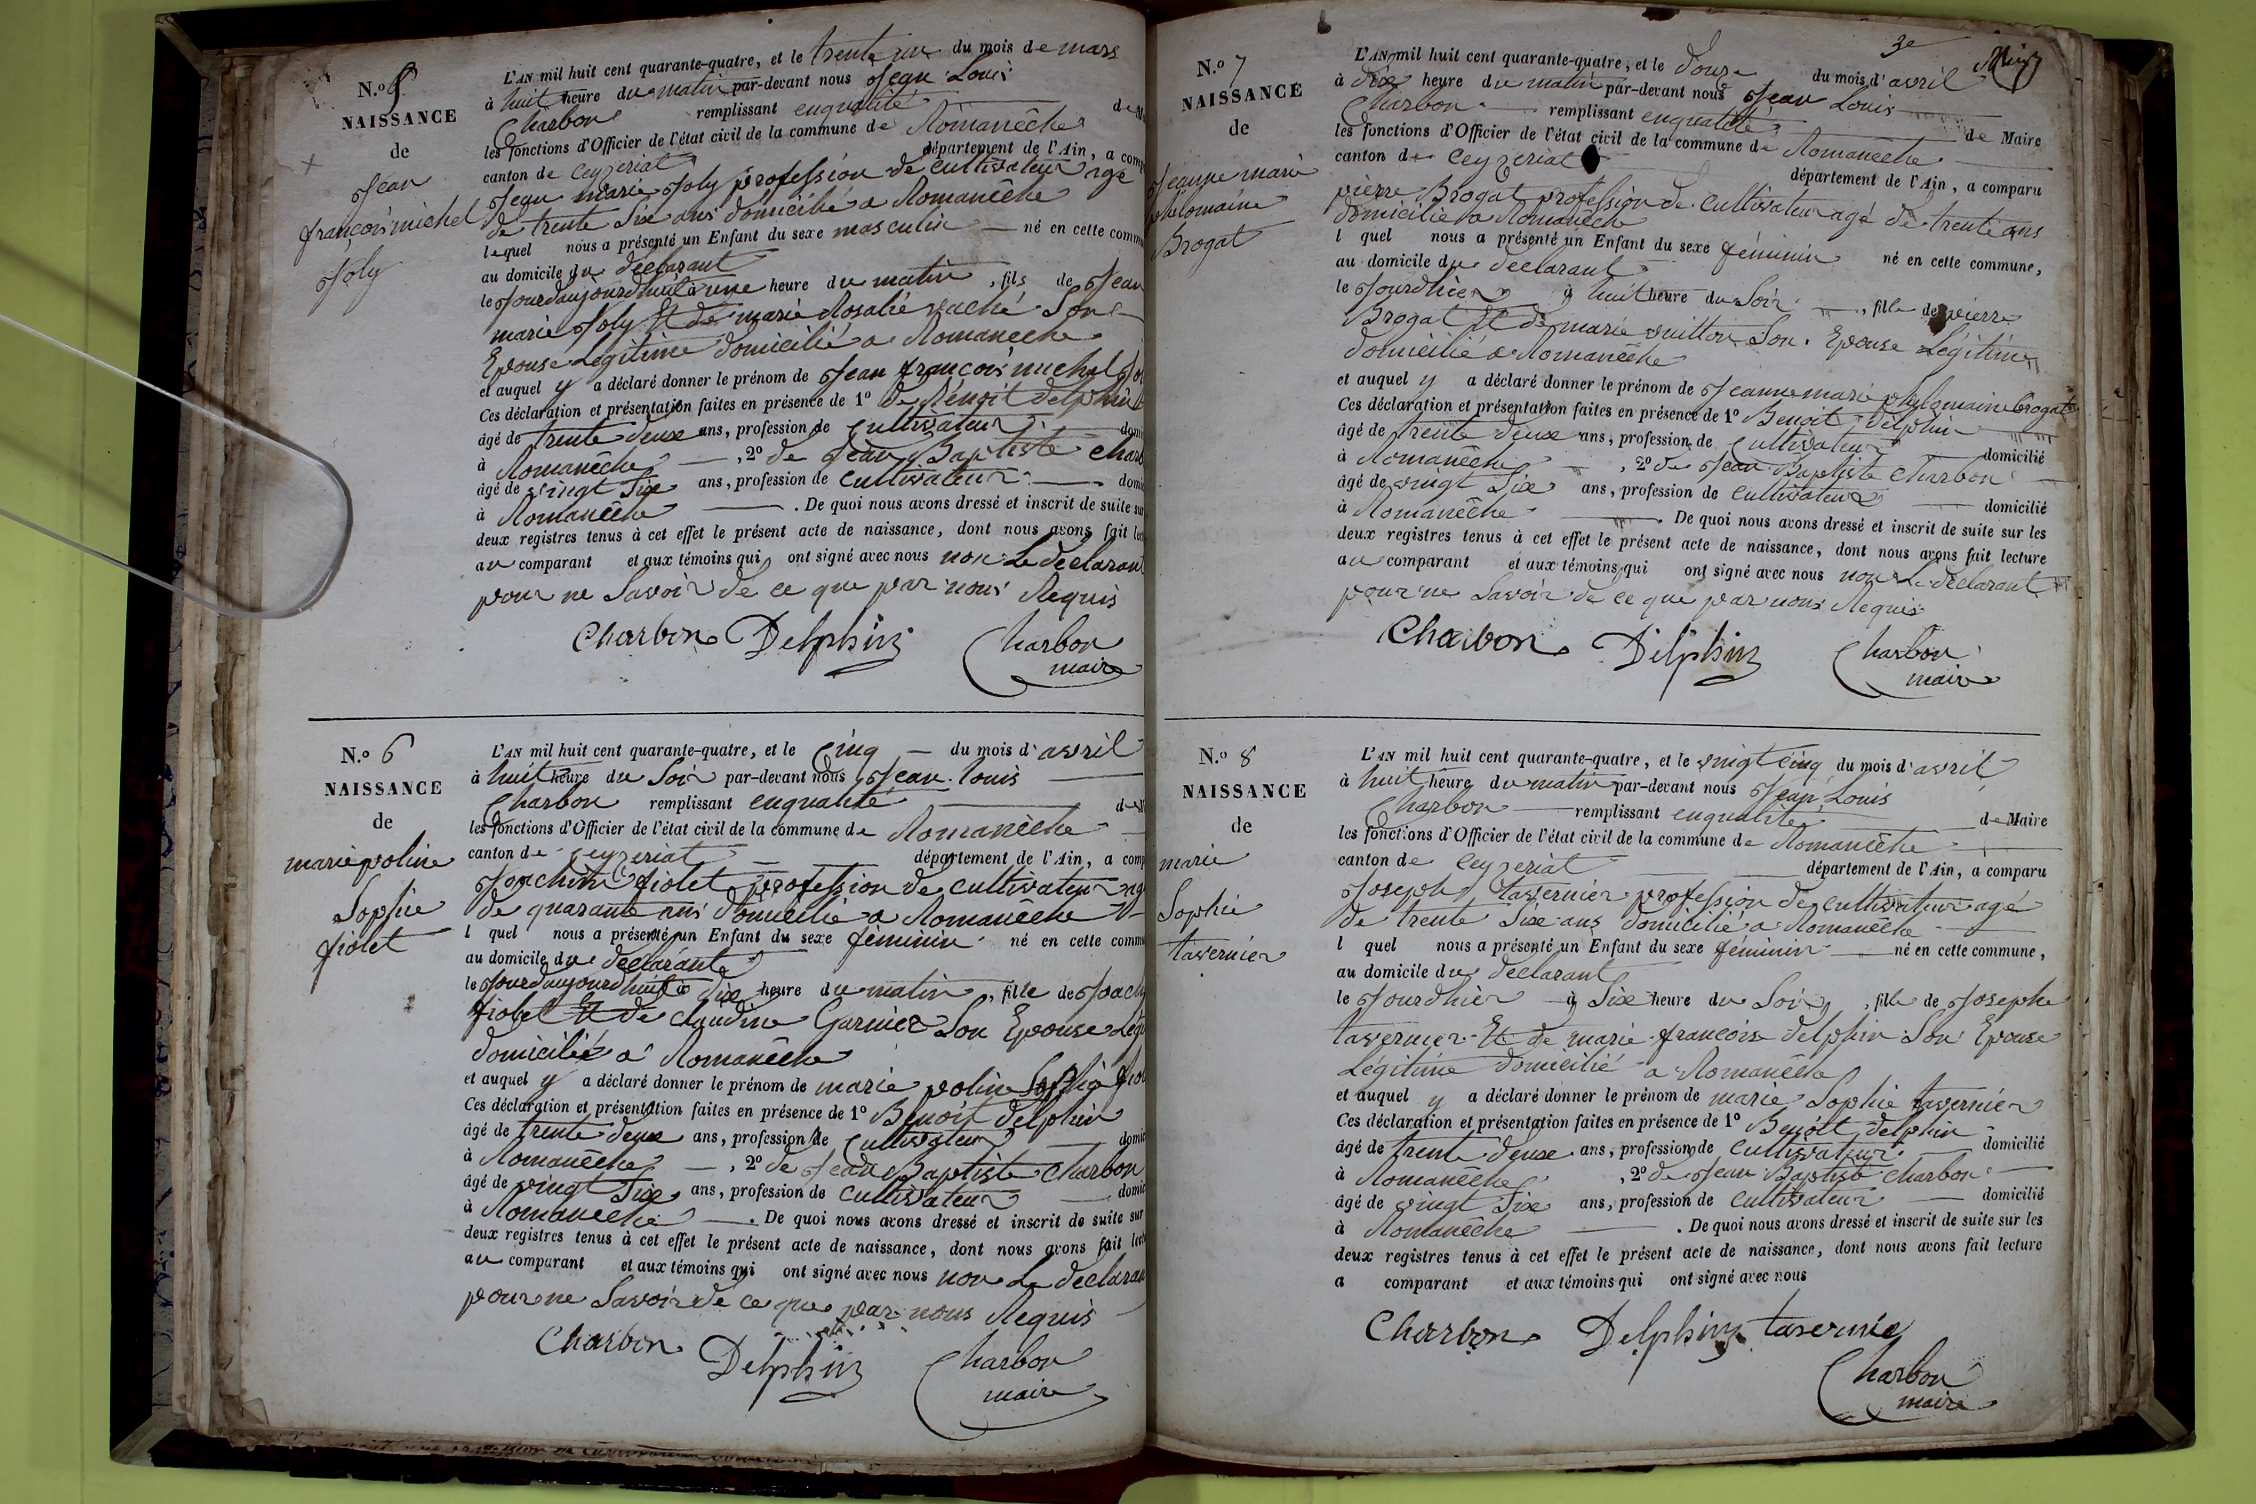 N.o 5
NAISSANCE
de
Jean
françois michel
Joly
L'AN mil huit cent quarante-quatre, et le trente un du mois de mars
à huit heure du matin par-devant nous Jean Louis
Charbon remplissant enqualité de
les fonctions d'Officier de l'état civil de la commune de Romanêche
canton de Ceyzeriat département de l'Ain, a comp
Jean marie Joly profession de cultivateur agé
de trente Six ans domicilié a Romanêche
lequel nous a présenté un Enfant du sexe masculin né en cette comm
au domicile du déclarant
le Jourdaujourdhuit à une heure du matin, fils de Jean
marie Joly Et de marie Rosalie vaché Son
Epouse Légitime domicilié a Romanêche
et auquel y a déclaré donner le prénom de Jean françois michel Jo
Ces déclaration et présentation faites en présence de 1º de Bénoit delphin
âgé de trente deux ans, profession de Cultivateur dom
à Romanêche, 2º de Jean Baptiste Charb
âgé de vingt Six ans, profession de Cultivateur domi
à Romanêche. De quoi nous avons dressé et inscrit de suite sur
deux registres tenus à cet effet le présent acte de naissance, dont nous avons fait lec
au comparant et aux témoins qui ont signé avec nous non Le déclarant
pour ne Savoir de ce que par nous Requis
Charbon Delphin Charbon
maire
N.o 6
NAISSANCE
de
marie poline
Sophie
fiolet
L'AN mil huit cent quarante-quatre, et le Cinq du mois d'avril
à huit heure du Soir par-devant nous Jean Louis
Charbon remplissant enqualité de
les fonctions d'Officier de l'état civil de la commune de Romanêche
canton de Ceyzeriat département de l'Ain, a comp
Joachim fiolet profession de cultivateur ag
de quarante ans domicilié a Romanêche
l quel nous a présenté un Enfant du sexe féminin né en cette comm
au domicile du déclarant
le Jourdaujourdhuit à dix heure du matin, fille de Joach
fiolet Et de claudine Garnier Son Epouse Legi
domicilié a Romanêche
et auquel y a déclaré donner le prénom de marie poline Sophie fiol
Ces déclaration et présentation faites en présence de 1º Benoit delphin
âgé de trente deux ans, profession de Cultivateur domic
à Romanêche, 2º de Jean Baptiste Charbon
âgé de vingt Six ans, profession de Cultivateur domic
à Romanêche. De quoi nous avons dressé et inscrit de suite sur
deux registres tenus à cet effet le présent acte de naissance, dont nous avons fait lect
au comparant et aux témoins qui ont signé avec nous non Le déclaran
pour ne Savoir de ce que par nous Requis
Charbon Delphin Charbon
maire
3e
N.o 7
NAISSANCE
de
Jeanne marie
philomaine
Brogat
L'AN mil huit cent quarante-quatre, et le douze du mois d'avril
à dix heure du matin par-devant nous Jean Louis
Charbon remplissant enqualité de Maire
les fonctions d'Officier de l'état civil de la commune de Romanêche
canton de Ceyzeriat département de l'Ain, a comparu
pierre Brogat profession de cultivateur agé de trente ans
domicilié a Romanêche
l quel nous a présenté un Enfant du sexe féminin né en cette commune,
au domicile du déclarant
le Jourdhier à huit heure du Soir, fille de pierre
Brogat Et de marie vuitton Son Epouse Légitime
domicilié a Romanêche
et auquel y a déclaré donner le prénom de Jeanne marie philomaine Brogat
Ces déclaration et présentation faites en présence de 1º Benoit delphin
âgé de trente deux ans, profession de Cultivateur domicilié
à Romanêche, 2º de Jean Baptiste Charbon
âgé de vingt Six ans, profession de Cultivateur domicilié
à Romanêche. De quoi nous avons dressé et inscrit de suite sur les
deux registres tenus à cet effet le présent acte de naissance, dont nous avons fait lecture
au comparant et aux témoins qui ont signé avec nous non Le déclarant
pour ne Savoir de ce que par nous Requis
Charbon Delphin Charbon
maire
N.o 8
NAISSANCE
de
marie
Sophie
tavernier
L'AN mil huit cent quarante-quatre, et le vingt cinq du mois d'avril
à huit heure du matin par-devant nous Jean Louis
Charbon remplissant enqualité de Maire
les fonctions d'Officier de l'état civil de la commune de Romanêche
canton de Ceyzeriat département de l'Ain, a comparu
Joseph tavernier profession de cultivateur agé
de trente Six ans domicilié a Romanêche
l quel nous a présenté un Enfant du sexe féminin né en cette commune,
au domicile du déclarant
le Jourdhier à Six heure du Soir, fille de Joseph
tavernier Et de marie françoise delphin Son Epouse
Légitime domicilié a Romanêche
et auquel y a déclaré donner le prénom de marie Sophie tavernier
Ces déclaration et présentation faites en présence de 1º Benoit delphin
âgé de trente deux ans, profession de Cultivateur domicilié
à Romanêche, 2º de Jean Baptiste Charbon
âgé de vingt Six ans, profession de Cultivateur domicilié
à Romanêche. De quoi nous avons dressé et inscrit de suite sur les
deux registres tenus à cet effet le présent acte de naissance, dont nous avons fait lecture
a comparant et aux témoins qui ont signé avec nous
Charbon Delphin tavernie
Charbon
maire